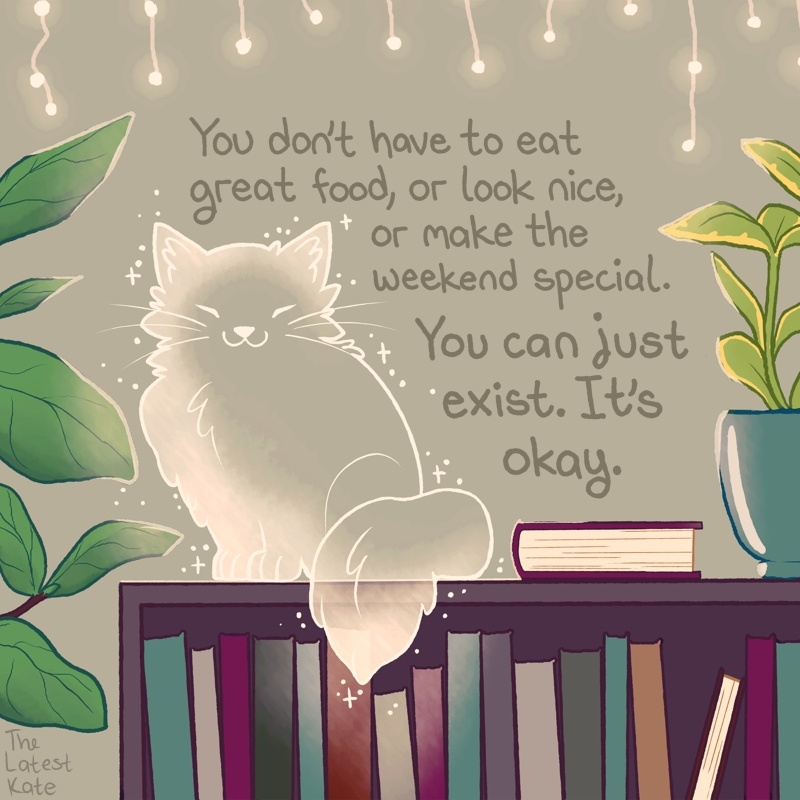 You don't have to eat
great food, or look nice,
or make the
weekend special.
You can just
exist. It's
okay.
The
Latest
Kate